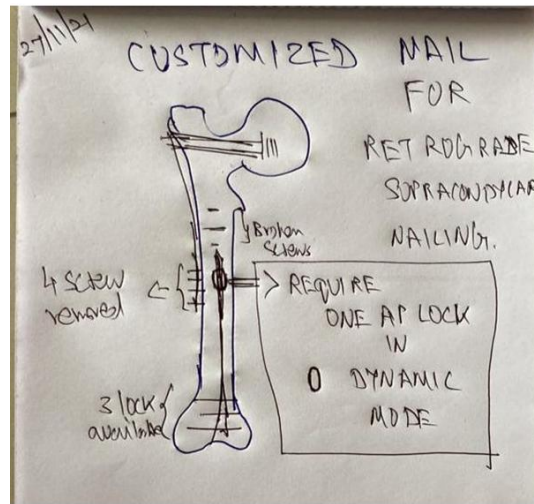 27/11/21
CUSTOMIZED NAIL
FOR
RETROGRADE
SUPRACONDYLAR
NAILING.
Broken
screws
4 screw
removed
REQUIRE
ONE AP LOCK
IN
DYNAMIC
MODE
3 lock
available